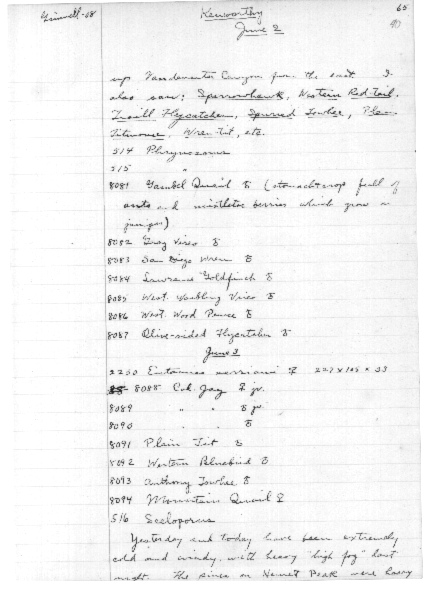 Grinnell-08
Kenworthy
65
40
June 2
up Vandeventer Canyon from the east. I
also saw: Sparrowhawk, Western Red-tail,
Traill Flycatcher, Spurred Towhee, Plain
Titmouse, Wren-tit, etc.
514 Phrynosoma
515 "
8081 Gambel Quail ♂ (stomach & crop full of
ants and mistletoe berries which grow on
juniper)
8082 Gray Vireo ♂
8083 San Diego Wren ♂
8084 Lawrence Goldfinch ♂
8085 West. Warbling Vireo ♂
8086 West. Wood Pewee ♂
8087 Olive-sided Flycatcher ♂
June 3
2250 Eutamias merriami ♀ 227 x 105 x 33
8088 Cal. Jay ♀ jv.
8089 " " ♂ jv.
8090 " ♂
8091 Plain Tit ♂
8092 Western Bluebird ♂
8093 Anthony Towhee ♂
8094 Mountain Quail ♀
516 Sceloporus
Yesterday and today have been extremely
cold and windy, with heavy "high fog" last
night. The pines on Hemet Peak were hoary